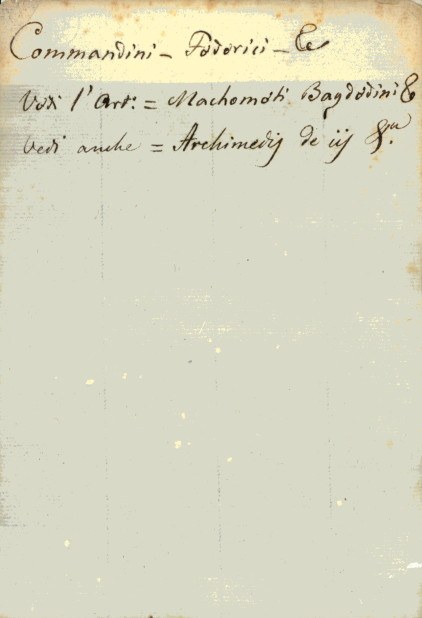 Commandini - Federici - &
Vedi l' Art: = Machometi Bagdedini &
Vedi anche = Archimedis de iis &.